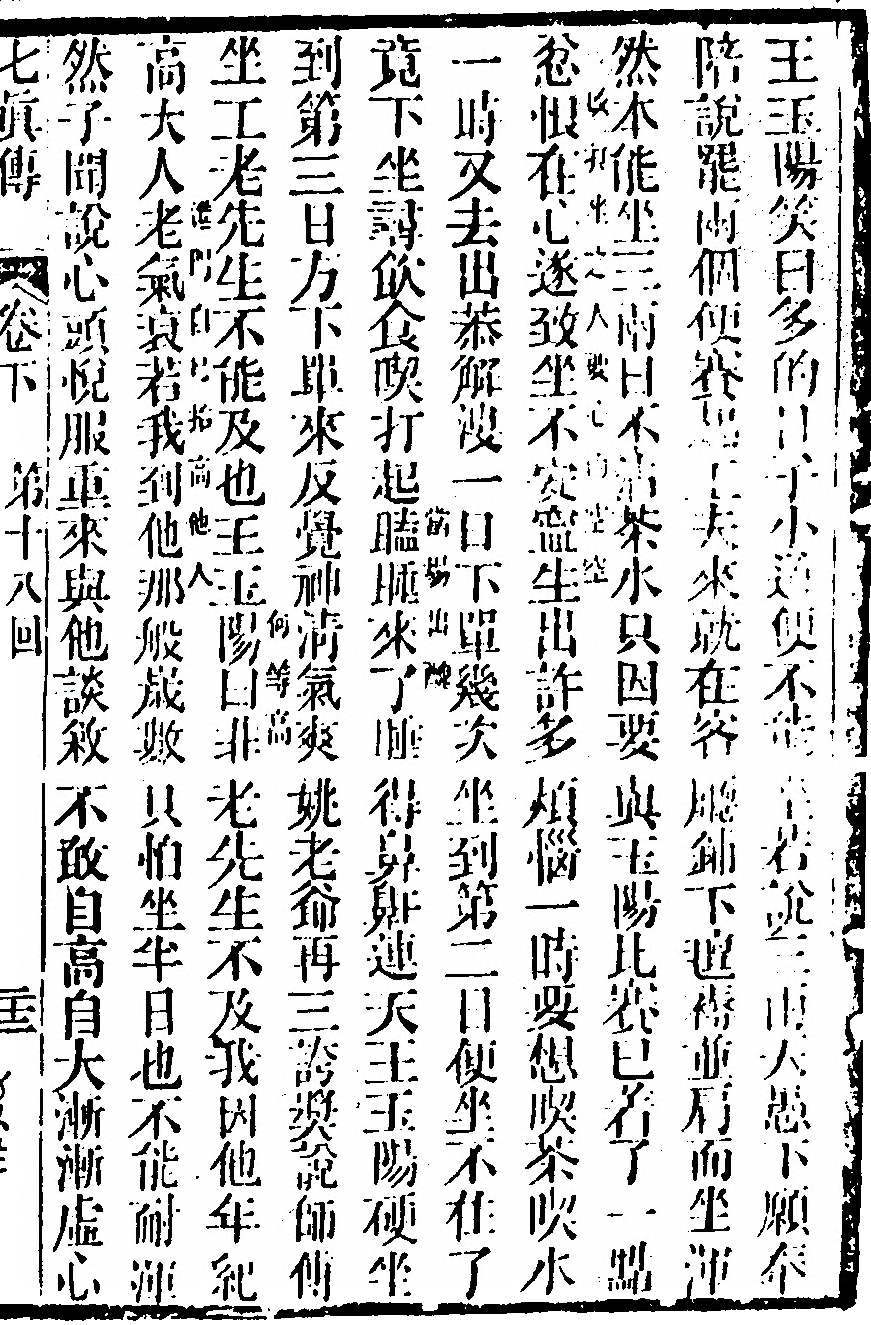 王玉陽笑曰多的日子小道便不能坐若說三兩天愚下願奉
陪說罷兩個便賽起工夫來就在客廳鋪下氊褥並肩而坐渾
然本能坐三兩日不沾茶水只因要與玉陽比賽已名了一點
收打坐之人要心內空空
忿恨在心遂致坐不安寧生出許多煩惱一時要想喫茶喫水
一時又去出恭解溲一日下單幾次坐到第二日便坐不住了
當場出醜
竟下坐尋飲食喫打起瞌睡來了睡得鼻鼾連天王玉陽硬坐
到第三日方下單來反覺神清氣爽姚老爺再三誇獎說師傅
何等高
坐工老先生不能及也王玉陽曰非老先生不及我因他年紀
高大人老氣衰若我到他那般歲數只怕坐半日也不能耐渾
抬高他人
然子聞說心頭悅服重來與他談敘不敢自高自大漸漸虛心
七眞傳 卷下 第十八回